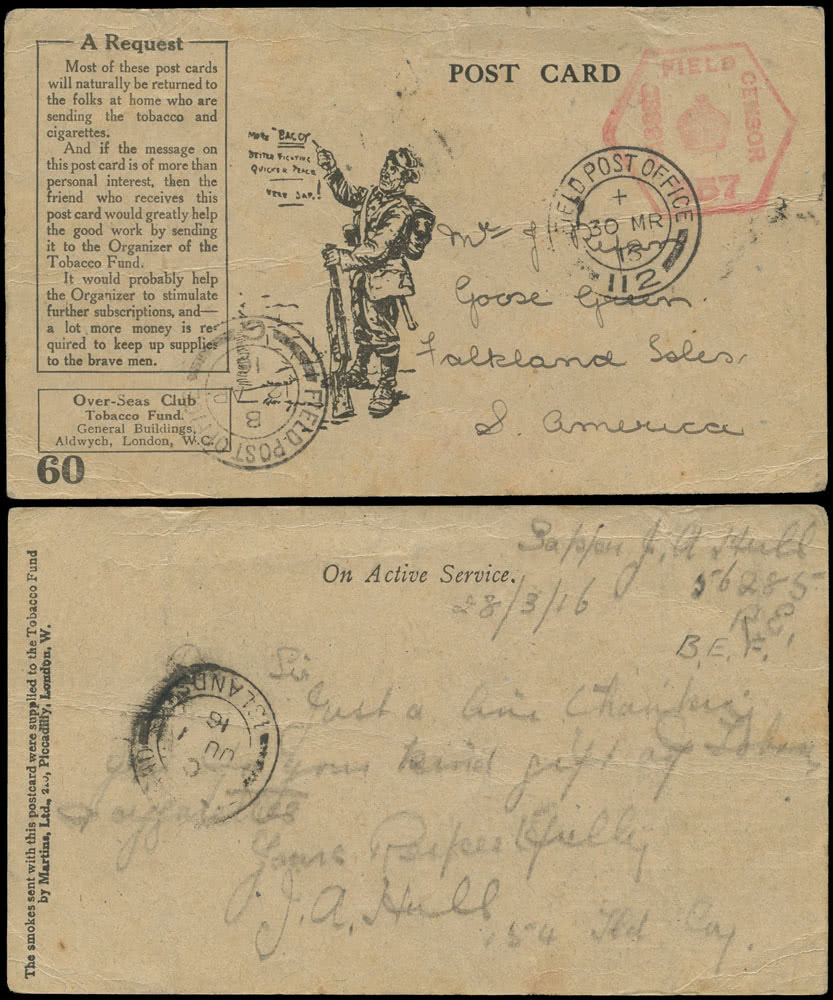 A Request
Most of these post cards
will naturally be returned to
the folks at home who are
sending the tobacco and
cigarettes.
And if the message on
this post card is of more than
personal interest, then the
friend who receives this
post card would greatly help
the good work by sending
it to the Organizer of the
Tobacco Fund.
It would probably help
the Organizer to stimulate
further subscriptions, and—
a lot more money is re-
quired to keep up supplies
to the brave men.
Over-Seas Club
Tobacco Fund.
General Buildings,
Aldwych, London, W.C.
60
MORE "BACCY"
BETTER FIGHTING
QUICKER PEACE
VERB SAP.!
POST CARD
FIELD CENSOR
FIELD POST OFFICE
30 MR
112
FIELD POST OFFICE
Mr J
Goose Green.
Falkland Isles.
S. America
The smokes sent with this postcard were supplied to the Tobacco Fund
by Martins, Ltd., Piccadilly, London, W.
On Active Service.
Sapper J. A Hull
28/3/16 56285
R.E,
B.E.F.
Sir
Just a line thanking
you for your kind gift of
Yours Respectfully
J. A. Hull
154 Fld Coy.
ISLANDS
16